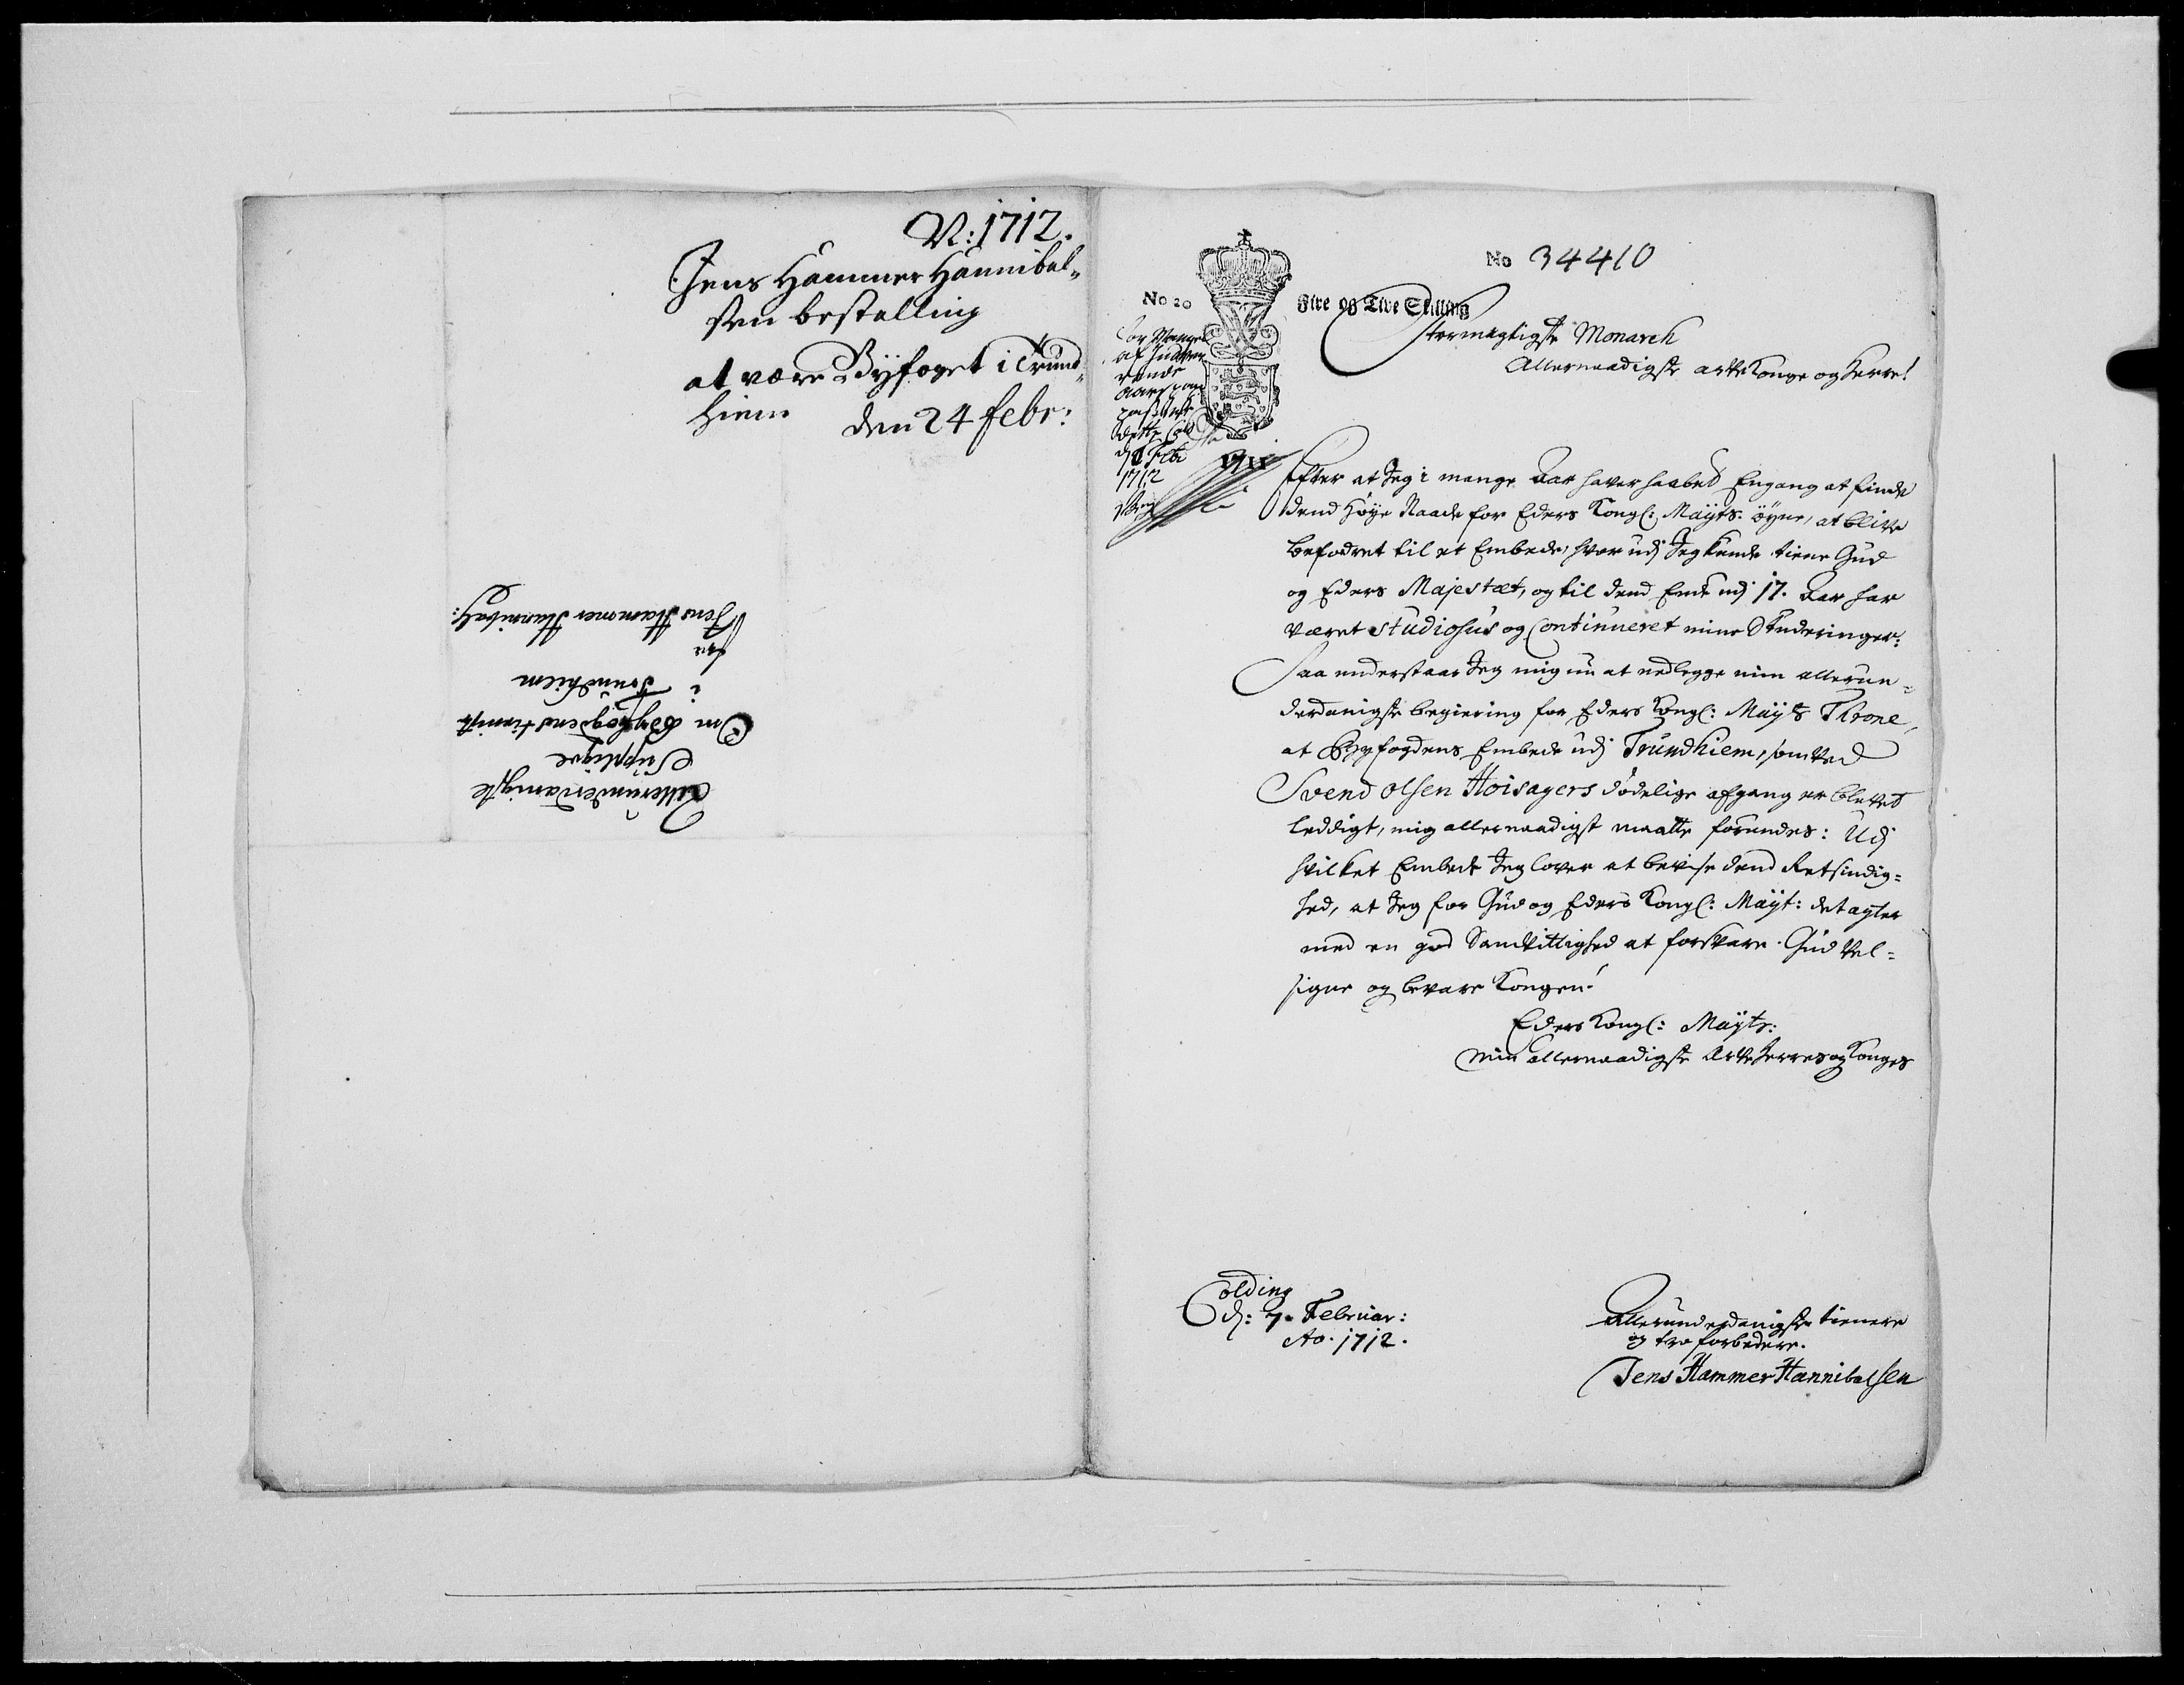 N: 1712.
Jens Hammer Hannibal-
sen bestalling
at være Byfoget i Trund-
hiem den 24 febr:
Allerunderdanigste
Supplique
Om Byfogdens tieniste
i Trundhiem
fra
Jens Hammer Hannibals:
No 34410
No 20
Fire og Tive Skilling
For Mangel
af indeværende
Aars
passeret
dette
d. Febr
1712
1711
Stormægtigste Monarch
Allernaadigste arfve Konge og Herre!
Efter at Jeg i mange Aar haver haabed Engang at finde
dend Høye Naade for Eders Kongl: Mayts. øyne, at blive
befodret til et Embede, hvor udj Jeg kunde tiene Gud
og Eders Majestæt, og til dend Ende udj 17. Aar har
været studiosus og Continueret mine Studeringer:
Saa understaar Jeg mig nu at nedlegge min allerun-
derdanigste begiering for Eders Kongl: Mayts Throne,
at Byefogdens Embede udj Trundhiem, som ved
Svend Olsen Hoisagers dødelige afgang er blevet
leddigt, mig allernaadigst maatte forundes: Udj
hvilket Embede Jeg lover at bevise dend Retsindig=
hed, at Jeg for Gud og Eders Kongl: Mayt: det agter
med en god Samvittighed at forsvare. Gud Vel=
signe og bevare Kongen!
Eders Kongl: Mayts:
Min allernaadigste Arfve Herres og Konges
Colding
d: 7. Februar:
Ao. 1712.
Allerunderdanigste tienere
og troe forbedere.
Jens Hammer Hannibalsen